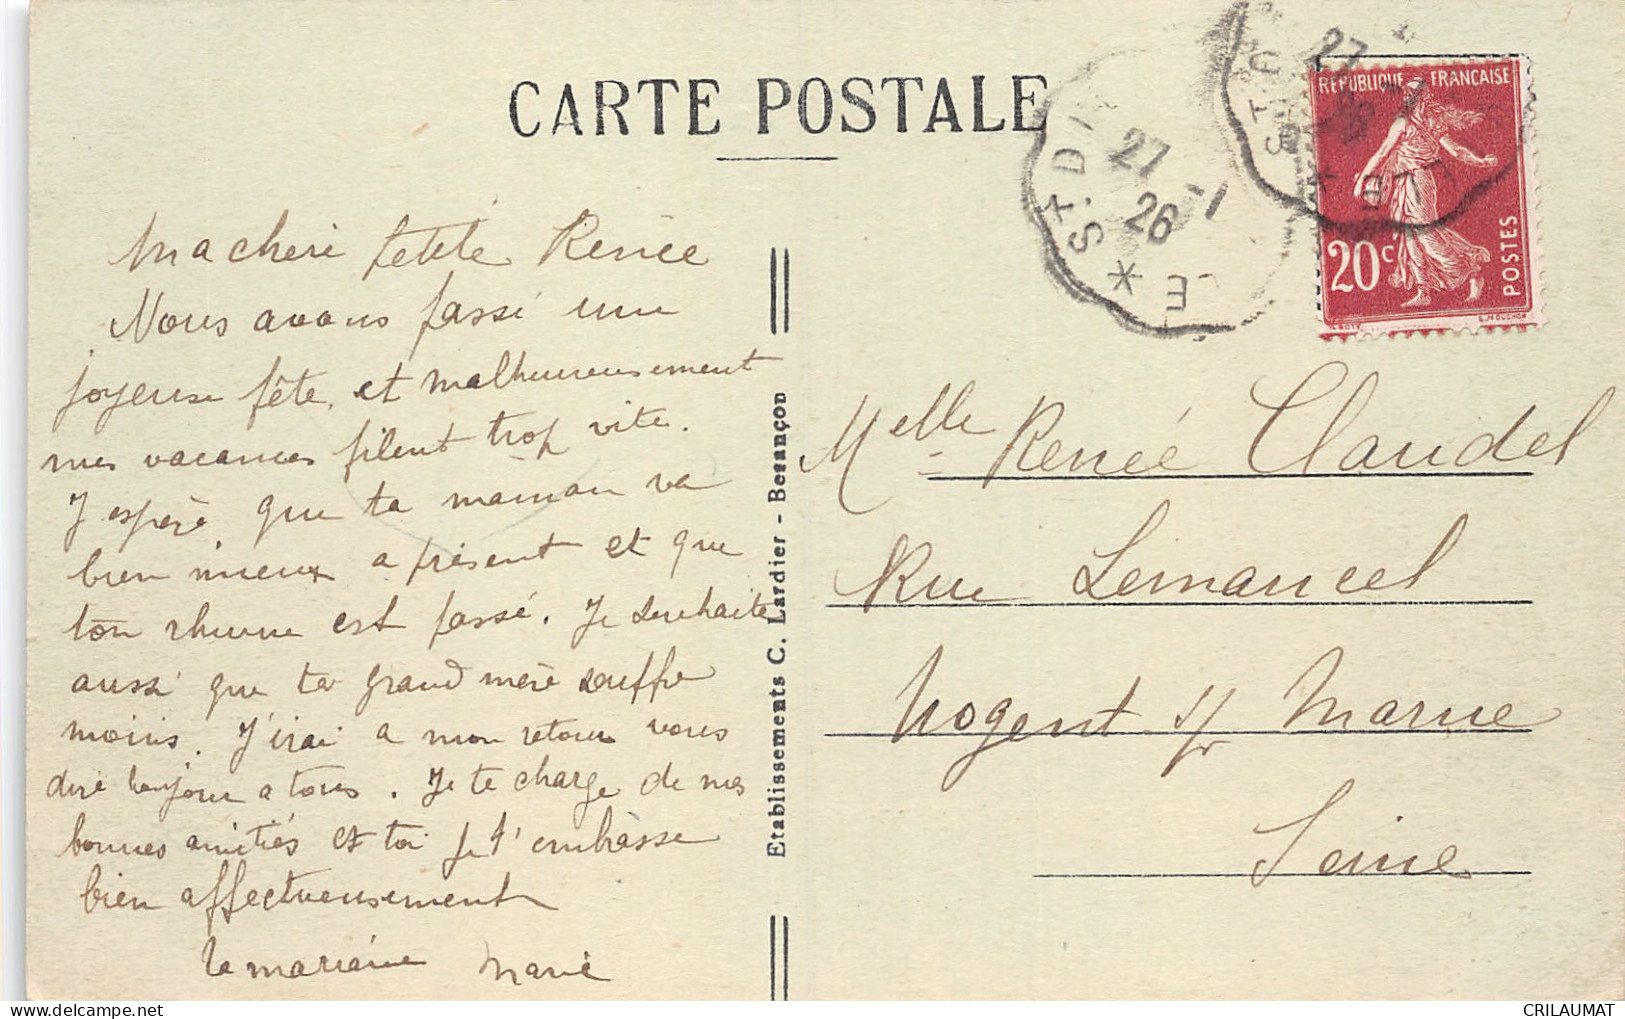 CARTE POSTALE
Ma cheri petite Renée
Nous avons passé une
joyeuse fête, et malheureusement
mes vacances filent trop vite.
J'espère que ta maman va
bien mieux a présent et que
ton rhume est passé. Je souhaite
aussi que ta grand mère souffre
moins. J'irai a mon retour vous
dire bonjour a tous. Je te charge de mes
bonnes amitiés et toi je t'embrasse
bien affectueusement
ta marraine Marie
Etablissements C. Lardier - Besançon
ST-DI
27-1
26
* LE
ST-D
27-1
REPUBLIQUE FRANCAISE
20c
POSTES
Melle Renée Claudel
Rue Lemancel
Nogent s/ Marne
Seine
CRILAUMAT